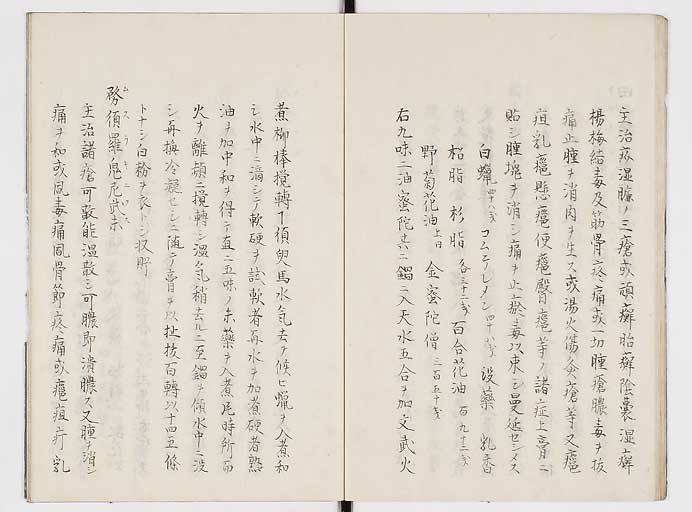 主治疥湿臁ノ三瘡或頑癬胎癬陰囊湿癬
楊梅結毒及筋骨疼痛或一切腫瘡膿毒ヲ抜
痛止腫ヲ消肉ヲ生ス或湯火傷灸瘡等又癰
疽乳癰懸癰便癰臀癰等ノ諸症上膏ニ
貼シ腫塊ヲ消シ痛ヲ止瘀毒以束シ蔓延セシメス
白蠟 コムテレメン 四十八戔 没藥 乳香
松脂 杉脂 各三十二戔 百合花油 百九十二戔
野菊花油 上曰 金蜜陀僧 三百五十戔
右九味二油蜜陀共ニ鍋ニ入天水五合ヲ加文武火
煮柳棒攪轉 須臾馬水氣去ヲ候ヒ蠟ヲ入煮和
シ水中ニ滴シテ軟硬ヲ試軟者再水ヲ加煮硬者熟
油ヲ加中和ヲ得テ直ニ五味ノ末藥ヲ入煮尼時所而
火ヲ離頻ニ攪轉シ温氣稍去ルニ至鍋ヲ傾水中ニ没
シ再換冷凝セシニ随テ膏ヲ以扯拔百轉以十四五條
トナシ白粉ヲ衣トシ収貯
務須羅ノ鬼尼
主治諸瘡可散能温散シ可膿即潰膿ス又腫ヲ消シ
痛ヲ和或風毒痛風骨節疼痛或癰疽疔乳